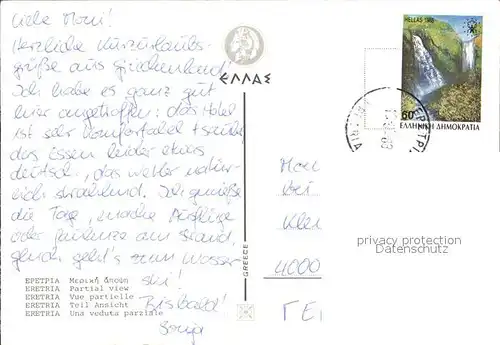 Liebe Moni!
Herzliche Kurzurlaubs-
grüße aus Griechenland!
Ich habe es ganz gut
hier angetroffen: das Hotel
ist sehr komfortabel + schön,
das Essen leider etwas
deutsch, das Wetter natür-
lich strahlend. Ich genieße
die Tage, mache Ausflüge
oder faulenze am Strand,
gleich geht's zum Wasser-
ski!
Bis bald!
Sonja
ΕΛΛΑΣ
HELLAS 1988
60
ΕΛΛΗΝΙΚΗ ΔΗΜΟΚΡΑΤΙΑ
ΕΡΕΤΡΙ
GREECE
4000
privacy protection
Datenschutz
ΕΡΕΤΡΙΑ Μερική άποψη
ERETRIA Partial view
ERETRIA Vue partielle
ERETRIA Teil Ansicht
ERETRIA Una veduta parziale